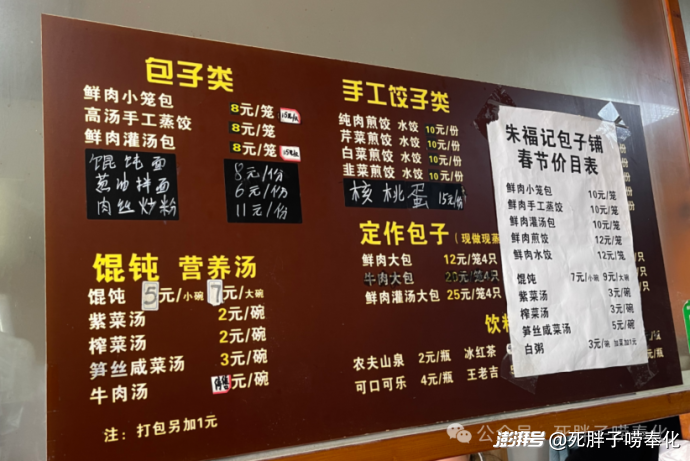 包子类
鲜肉小笼包 8元/笼
高汤手工蒸饺 8元/笼
鲜肉灌汤包 8元/笼
馄饨面 8元/份
葱油拌面 6元/份
肉丝炒粉 11元/份
馄饨 营养汤
馄饨 5元/小碗 7元/大碗
紫菜汤 2元/碗
榨菜汤 2元/碗
笋丝咸菜汤 3元/碗
牛肉汤 元/碗
注：打包另加1元
手工饺子类
纯肉煎饺 水饺 10元/份
芹菜煎饺 水饺 10元/份
白菜煎饺 水饺 10元/份
韭菜煎饺 水饺 10元/份
核桃蛋 15元/份
定作包子（现做现蒸
鲜肉大包 12元/笼4只
牛肉大包 元/笼4只
鲜肉灌汤大包 25元/笼4只
饮料
农夫山泉 2元/瓶 冰红茶
可口可乐 4元/瓶 王老吉
朱福记包子铺
春节价目表
鲜肉小笼包 10元/笼
鲜肉手工蒸饺 10元/笼
鲜肉灌汤包 10元/笼
鲜肉煎饺 12元/笼
鲜肉水饺 12元/笼
馄饨 7元/小碗 9元/大碗
紫菜汤 3元/碗
榨菜汤 3元/碗
笋丝咸菜汤 5元/碗
白粥 3元/碗 加菜加1元
公众号 死胖子唠奉化
澎湃号@死胖子唠奉化